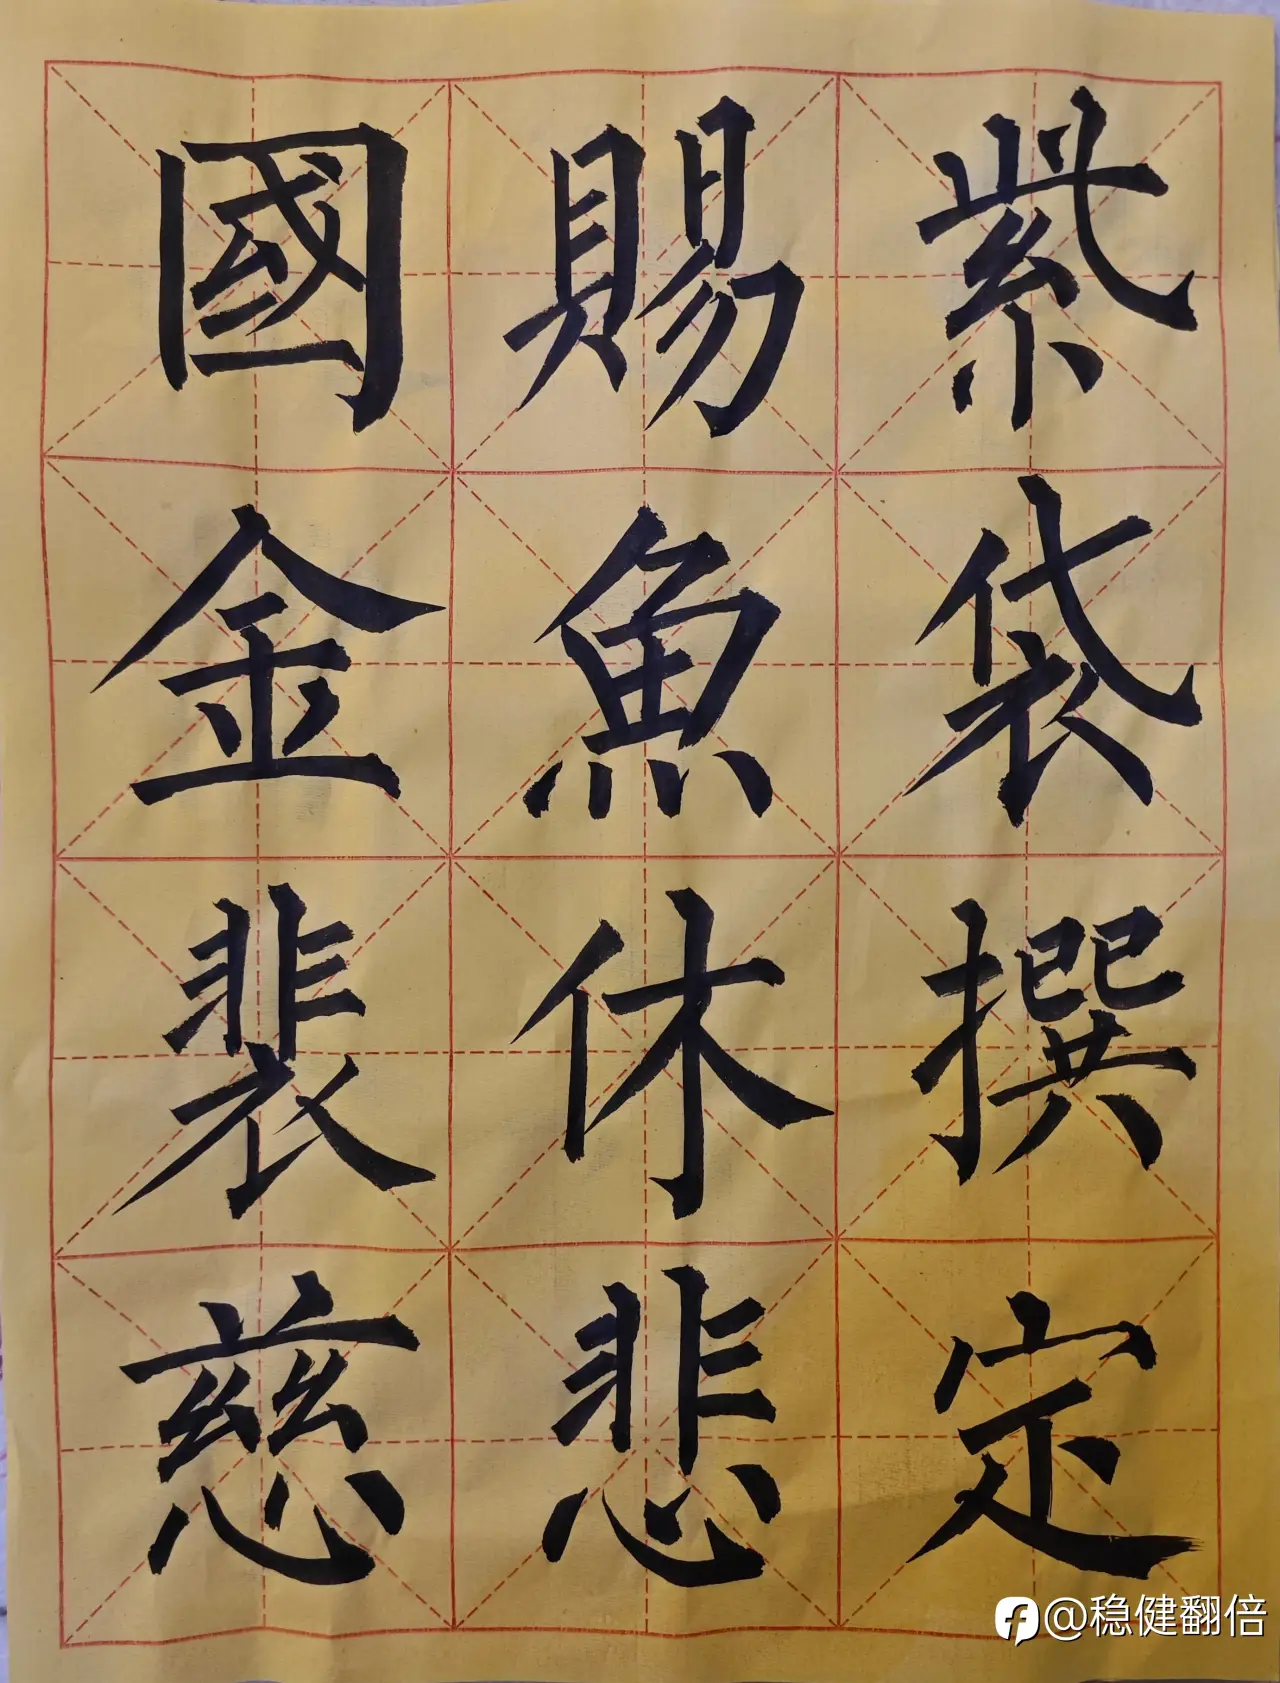 國賜紫
金魚袋
裴休撰
慈悲定
@稳健翻倍